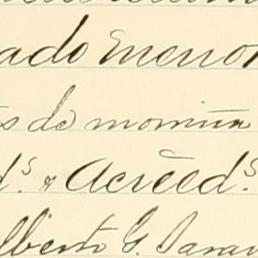 ado menor
s de momina
d.s & Acreed.s
lberto G. Sarav